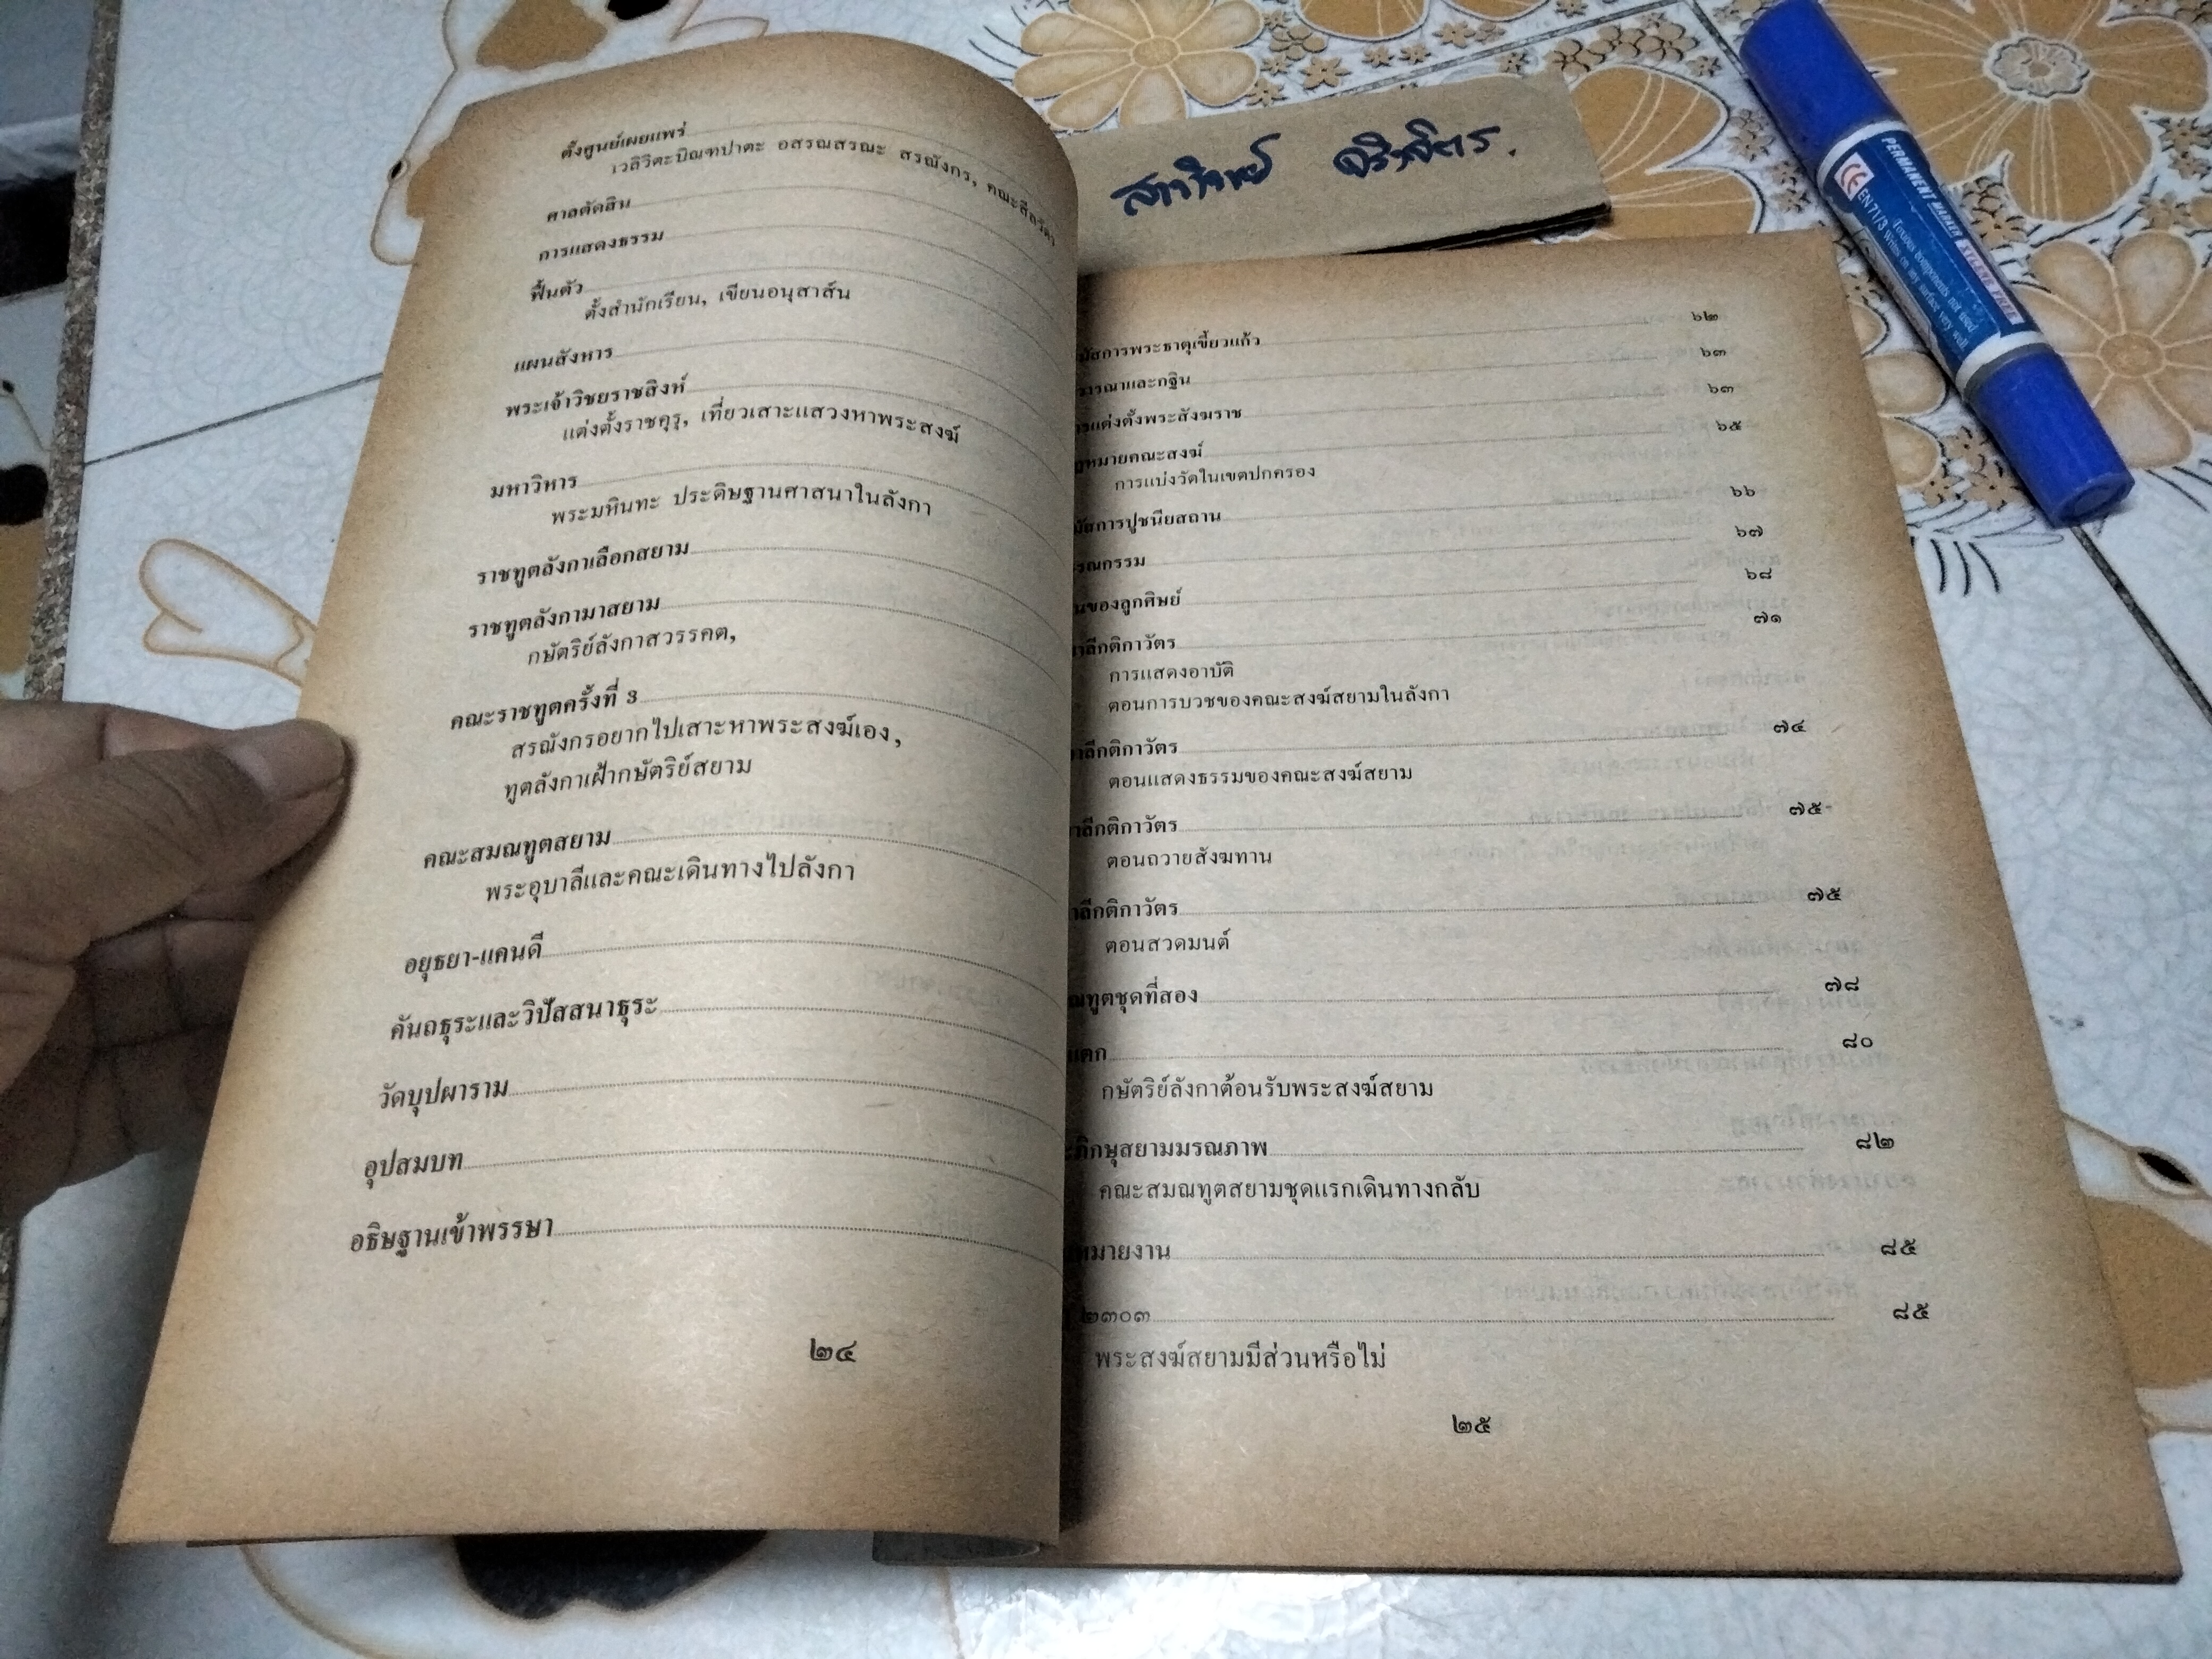 ตั้งศูนย์เผยแพร่
เวลิวิตะปิณฑปาตะ อสรณสรณะ สรณังกร, คณะสีลวัตร
ศาลตัดสิน
การแสดงธรรม
ฟื้นตัว
ตั้งสำนักเรียน, เขียนอนุสาส์น
แผนสังหาร
พระเจ้าวิชยราชสิงห์
แต่งตั้งราชคุรุ, เที่ยวเสาะแสวงหาพระสงฆ์
มหาวิหาร
พระมหินทะ ประดิษฐานศาสนาในลังกา
ราชทูตลังกาเลือกสยาม
ราชทูตลังกามาสยาม
กษัตริย์ลังกาสวรรคต,
คณะราชทูตครั้งที่ 3
สรณังกรอยากไปเสาะหาพระสงฆ์เอง,
ทูตลังกาเฝ้ากษัตริย์สยาม
คณะสมณทูตสยาม
พระอุบาลีและคณะเดินทางไปลังกา
อยุธยา-แคนดี
คันถธุระและวิปัสสนาธุระ
วัดบุปผาราม
อุปสมบท
อธิษฐานเข้าพรรษา
๒๔
มัสการพระธาตุเขี้ยวแก้ว ๖๒
วารณาและกฐิน ๖๓
ารแต่งตั้งพระสังฆราช ๖๓
ฎหมายคณะสงฆ์ ๖๕
การแบ่งวัดในเขตปกครอง
มัสการปูชนียสถาน ๖๖
รณกรรม ๖๗
นของลูกศิษย์ ๖๘
าลีกติกาวัตร ๗๑
การแสดงอาบัติ
ตอนการบวชของคณะสงฆ์สยามในลังกา
าลีกติกาวัตร ๗๔
ตอนแสดงธรรมของคณะสงฆ์สยาม
าลีกติกาวัตร ๗๕
ตอนถวายสังฆทาน
าลีกติกาวัตร ๗๕
ตอนสวดมนต์
ณทูตชุดที่สอง ๗๘
แตก ๘๐
กษัตริย์ลังกาต้อนรับพระสงฆ์สยาม
ะภิกษุสยามมรณภาพ ๘๒
คณะสมณทูตสยามชุดแรกเดินทางกลับ
หมายงาน ๘๕
๒๓๐๓ ๘๕
พระสงฆ์สยามมีส่วนหรือไม่
๒๕
PERMANENT MARKER XYLENE FREE
CE EN71/3
Toxious components not used
Writes on any surface very well.